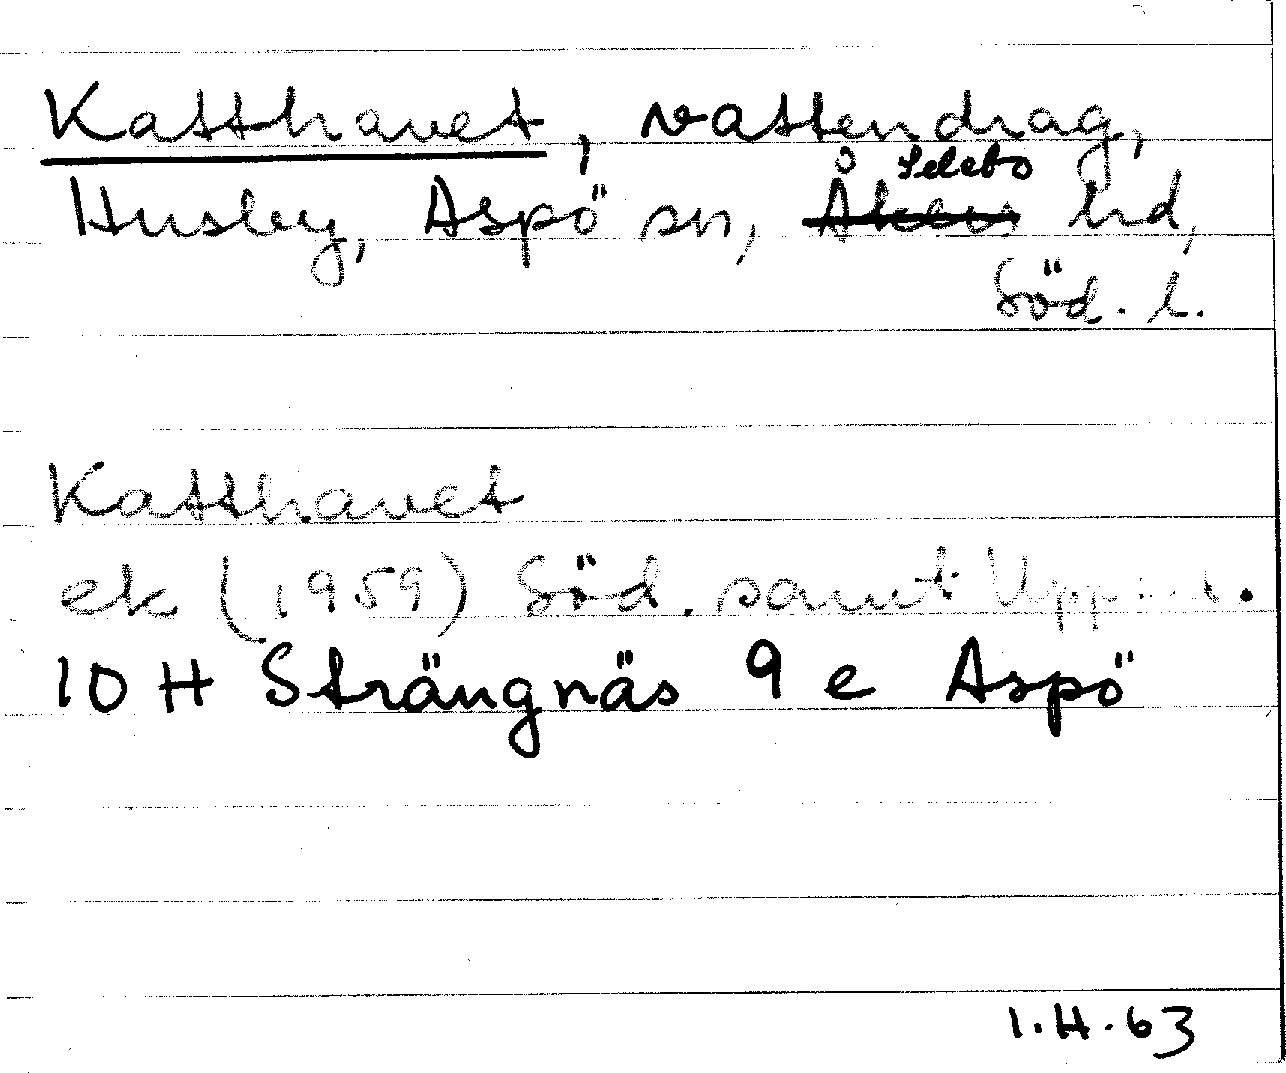 Katthavet, vattendrag,
Husby, Aspö sn, Åkers Selebo hd,
Söd. l.
Katthavet
ek (1959) Söd. samt Upps. l.
10 H Strängnäs 9 e Aspö
1.H.63